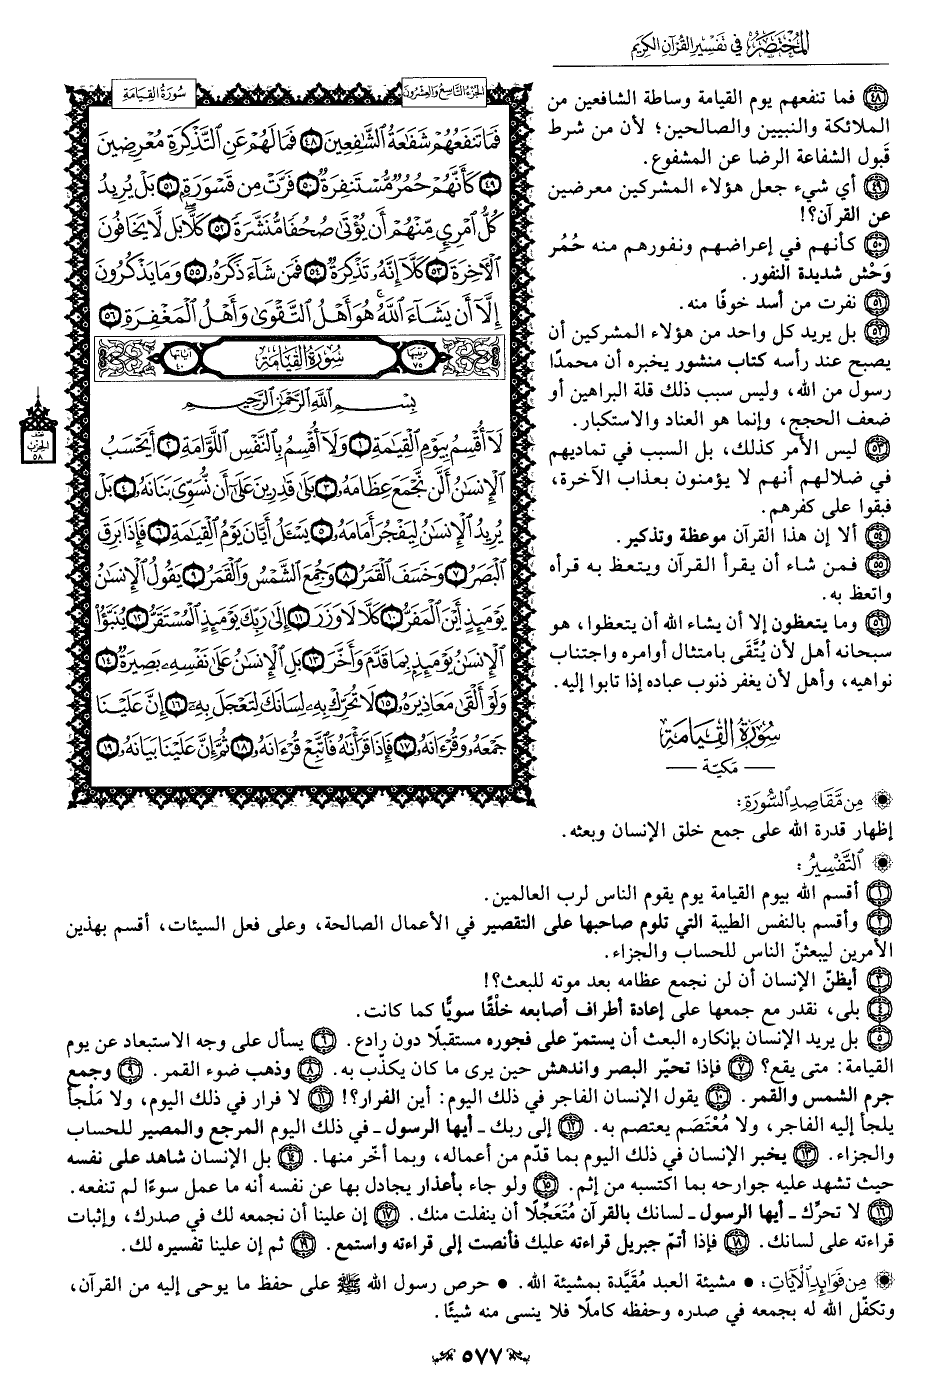 المختصر في تفسير القرآن الكريم
الجزء التاسع والعشرون
سورة القيامة
فَمَا تَنفَعُهُمْ شَفَٰعَةُ الشَّٰفِعِينَ ٤٨ فَمَا لَهُمْ عَنِ التَّذْكِرَةِ مُعْرِضِينَ
٤٩ كَأَنَّهُمْ حُمُرٌ مُّسْتَنفِرَةٌ ٥٠ فَرَّتْ مِن قَسْوَرَةٍ ٥١ بَلْ يُرِيدُ
كُلُّ امْرِئٍ مِّنْهُمْ أَن يُؤْتَىٰ صُحُفًا مُّنَشَّرَةً ٥٢ كَلَّا بَل لَّا يَخَافُونَ
الْآخِرَةَ ٥٣ كَلَّا إِنَّهُ تَذْكِرَةٌ ٥٤ فَمَن شَاءَ ذَكَرَهُ ٥٥ وَمَا يَذْكُرُونَ
إِلَّا أَن يَشَاءَ اللَّهُ هُوَ أَهْلُ التَّقْوَىٰ وَأَهْلُ الْمَغْفِرَةِ ٥٦
ترتيبها ٧٥ سورة القيامة آياتها ٤٠
بِسْمِ اللَّهِ الرَّحْمَٰنِ الرَّحِيمِ
لَا أُقْسِمُ بِيَوْمِ الْقِيَٰمَةِ ١ وَلَا أُقْسِمُ بِالنَّفْسِ اللَّوَّامَةِ ٢ أَيَحْسَبُ
الْإِنسَٰنُ أَلَّن نَّجْمَعَ عِظَامَهُ ٣ بَلَىٰ قَٰدِرِينَ عَلَىٰ أَن نُّسَوِّيَ بَنَانَهُ ٤ بَلْ
يُرِيدُ الْإِنسَٰنُ لِيَفْجُرَ أَمَامَهُ ٥ يَسْـَٔلُ أَيَّانَ يَوْمُ الْقِيَٰمَةِ ٦ فَإِذَا بَرِقَ
الْبَصَرُ ٧ وَخَسَفَ الْقَمَرُ ٨ وَجُمِعَ الشَّمْسُ وَالْقَمَرُ ٩ يَقُولُ الْإِنسَٰنُ
يَوْمَئِذٍ أَيْنَ الْمَفَرُّ ١٠ كَلَّا لَا وَزَرَ ١١ إِلَىٰ رَبِّكَ يَوْمَئِذٍ الْمُسْتَقَرُّ ١٢ يُنَبَّؤُا
الْإِنسَٰنُ يَوْمَئِذٍ بِمَا قَدَّمَ وَأَخَّرَ ١٣ بَلِ الْإِنسَٰنُ عَلَىٰ نَفْسِهِ بَصِيرَةٌ ١٤
وَلَوْ أَلْقَىٰ مَعَاذِيرَهُ ١٥ لَا تُحَرِّكْ بِهِ لِسَانَكَ لِتَعْجَلَ بِهِ ١٦ إِنَّ عَلَيْنَا
جَمْعَهُ وَقُرْءَانَهُ ١٧ فَإِذَا قَرَأْنَٰهُ فَاتَّبِعْ قُرْءَانَهُ ١٨ ثُمَّ إِنَّ عَلَيْنَا بَيَانَهُ ١٩
نصف
الحزب
٥٨
٤٨ فما تنفعهم يوم القيامة وساطة الشافعين من
الملائكة والنبيين والصالحين؛ لأن من شرط
قَبول الشفاعة الرضا عن المشفوع.
٤٩ أي شيء جعل هؤلاء المشركين معرضين
عن القرآن؟!
٥٠ كأنهم في إعراضهم ونفورهم منه حُمُر
وَحْش شديدة النفور.
٥١ نفرت من أسد خوفًا منه.
٥٢ بل يريد كل واحد من هؤلاء المشركين أن
يصبح عند رأسه كتاب منشور يخبره أن محمدًا
رسول من الله، وليس سبب ذلك قلة البراهين أو
ضعف الحجج، وإنما هو العناد والاستكبار.
٥٣ ليس الأمر كذلك، بل السبب في تماديهم
في ضلالهم أنهم لا يؤمنون بعذاب الآخرة،
فبقوا على كفرهم.
٥٤ ألا إن هذا القرآن موعظة وتذكير.
٥٥ فمن شاء أن يقرأ القرآن ويتعظ به قرأه
واتعظ به.
٥٦ وما يتعظون إلا أن يشاء الله أن يتعظوا، هو
سبحانه أهل لأن يُتَّقَى بامتثال أوامره واجتناب
نواهيه، وأهل لأن يغفر ذنوب عباده إذا تابوا إليه.
سورة القيامة
— مكية —
من مقاصد السورة:
إظهار قدرة الله على جمع خلق الإنسان وبعثه.
التفسير:
١ أقسم الله بيوم القيامة يوم يقوم الناس لرب العالمين.
٢ وأقسم بالنفس الطيبة التي تلوم صاحبها على التقصير في الأعمال الصالحة، وعلى فعل السيئات، أقسم بهذين
الأمرين ليبعثنّ الناس للحساب والجزاء.
٣ أيظنّ الإنسان أن لن نجمع عظامه بعد موته للبعث؟!
٤ بلى، نقدر مع جمعها على إعادة أطراف أصابعه خلْقًا سويًّا كما كانت.
٥ بل يريد الإنسان بإنكاره البعث أن يستمرّ على فجوره مستقبلًا دون رادع. ٦ يسأل على وجه الاستبعاد عن يوم
القيامة: متى يقع؟ ٧ فإذا تحيّر البصر واندهش حين يرى ما كان يكذّب به. ٨ وذهب ضوء القمر. ٩ وجمع
جرم الشمس والقمر. ١٠ يقول الإنسان الفاجر في ذلك اليوم: أين الفرار؟! ١١ لا فرار في ذلك اليوم، ولا مَلْجأ
يلجأ إليه الفاجر، ولا مُعْتَصَم يعتصم به. ١٢ إلى ربك ـ أيها الرسول ـ في ذلك اليوم المرجع والمصير للحساب
والجزاء. ١٣ يخبر الإنسان في ذلك اليوم بما قدّم من أعماله، وبما أخّر منها. ١٤ بل الإنسان شاهد على نفسه
حيث تشهد عليه جوارحه بما اكتسبه من إثم. ١٥ ولو جاء بأعذار يجادل بها عن نفسه أنه ما عمل سوءًا لم تنفعه.
١٦ لا تحرِّك ـ أيها الرسول ـ لسانك بالقرآن مُتَعَجِّلًا أن ينفلت منك. ١٧ إن علينا أن نجمعه لك في صدرك، وإثبات
قراءته على لسانك. ١٨ فإذا أتمّ جبريل قراءته عليك فأنصت إلى قراءته واستمع. ١٩ ثم إن علينا تفسيره لك.
من فوائد الآيات: • مشيئة العبد مُقَيَّدة بمشيئة الله. • حرص رسول الله ﷺ على حفظ ما يوحى إليه من القرآن،
وتكفّل الله له بجمعه في صدره وحفظه كاملًا فلا ينسى منه شيئًا.
٥٧٧